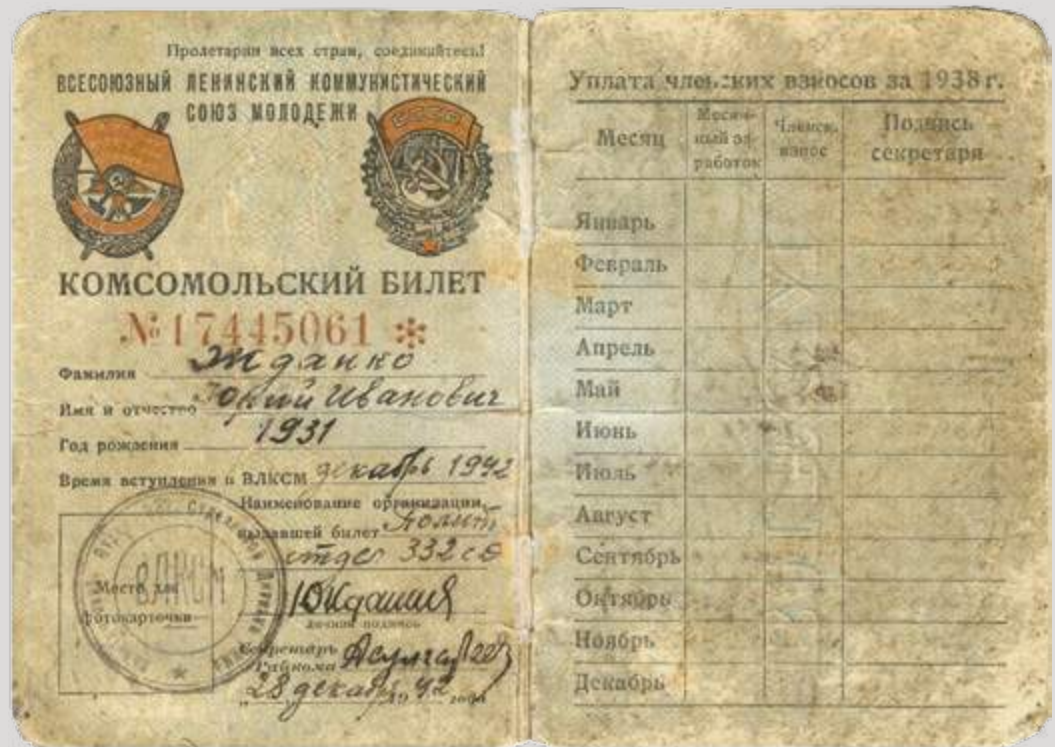 Пролетарии всех стран, соединяйтесь!
ВСЕСОЮЗНЫЙ ЛЕНИНСКИЙ КОММУНИСТИЧЕСКИЙ
СОЮЗ МОЛОДЕЖИ
СССР
КОМСОМОЛЬСКИЙ БИЛЕТ
№ 17445061 *
Фамилия Жданко
Имя и отчество Юрий Иванович
Год рождения 1931
Время вступления в ВЛКСМ декабрь 1942
Наименование организации,
выдавшей билет Полит
отдел 332 сд
Место для
фотокарточки
ВЛКСМ
личная подпись
Секретарь
Райкома
"28" декабря 1942 года
Уплата членских взносов за 1938 г.
Месяц
Месяч-
ный за-
работок
Членск.
взнос
Подпись
секретаря
Январь
Февраль
Март
Апрель
Май
Июнь
Июль
Август
Сентябрь
Октябрь
Ноябрь
Декабрь